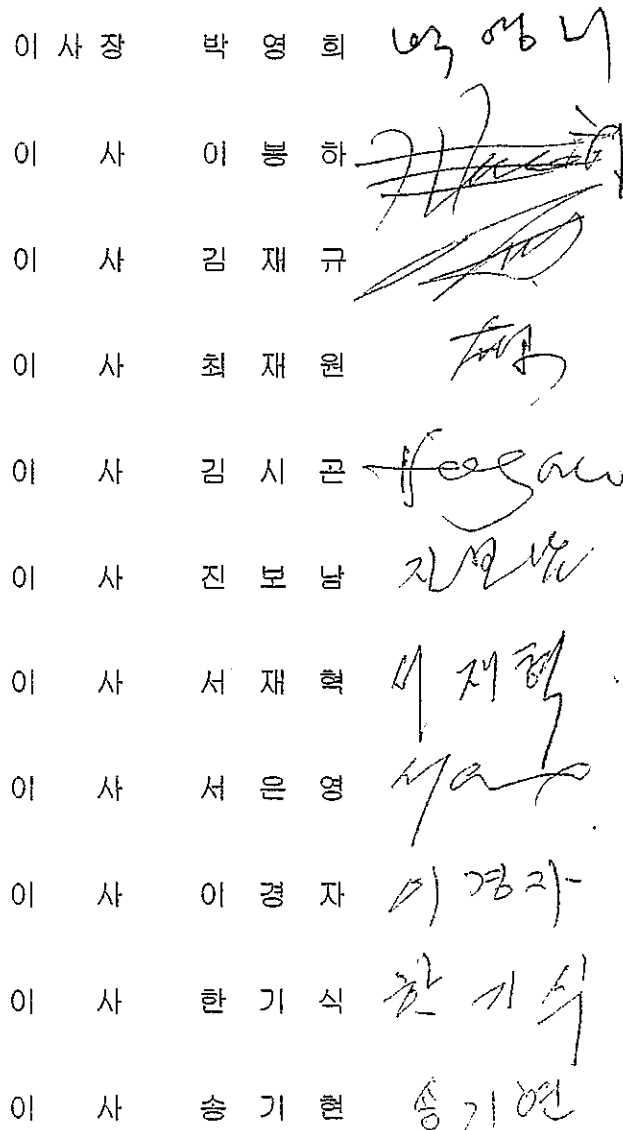 이 사 장 박 영 희 박 영 희
이 사 이 봉 하
이 사 김 재 규
이 사 최 재 원
이 사 김 시 곤
이 사 진 보 남 진 보 남
이 사 서 재 혁 서 재 혁
이 사 서 은 영 서
이 사 이 경 자 이 경 자
이 사 한 기 식 한 기 식
이 사 송 기 현 송 기 현